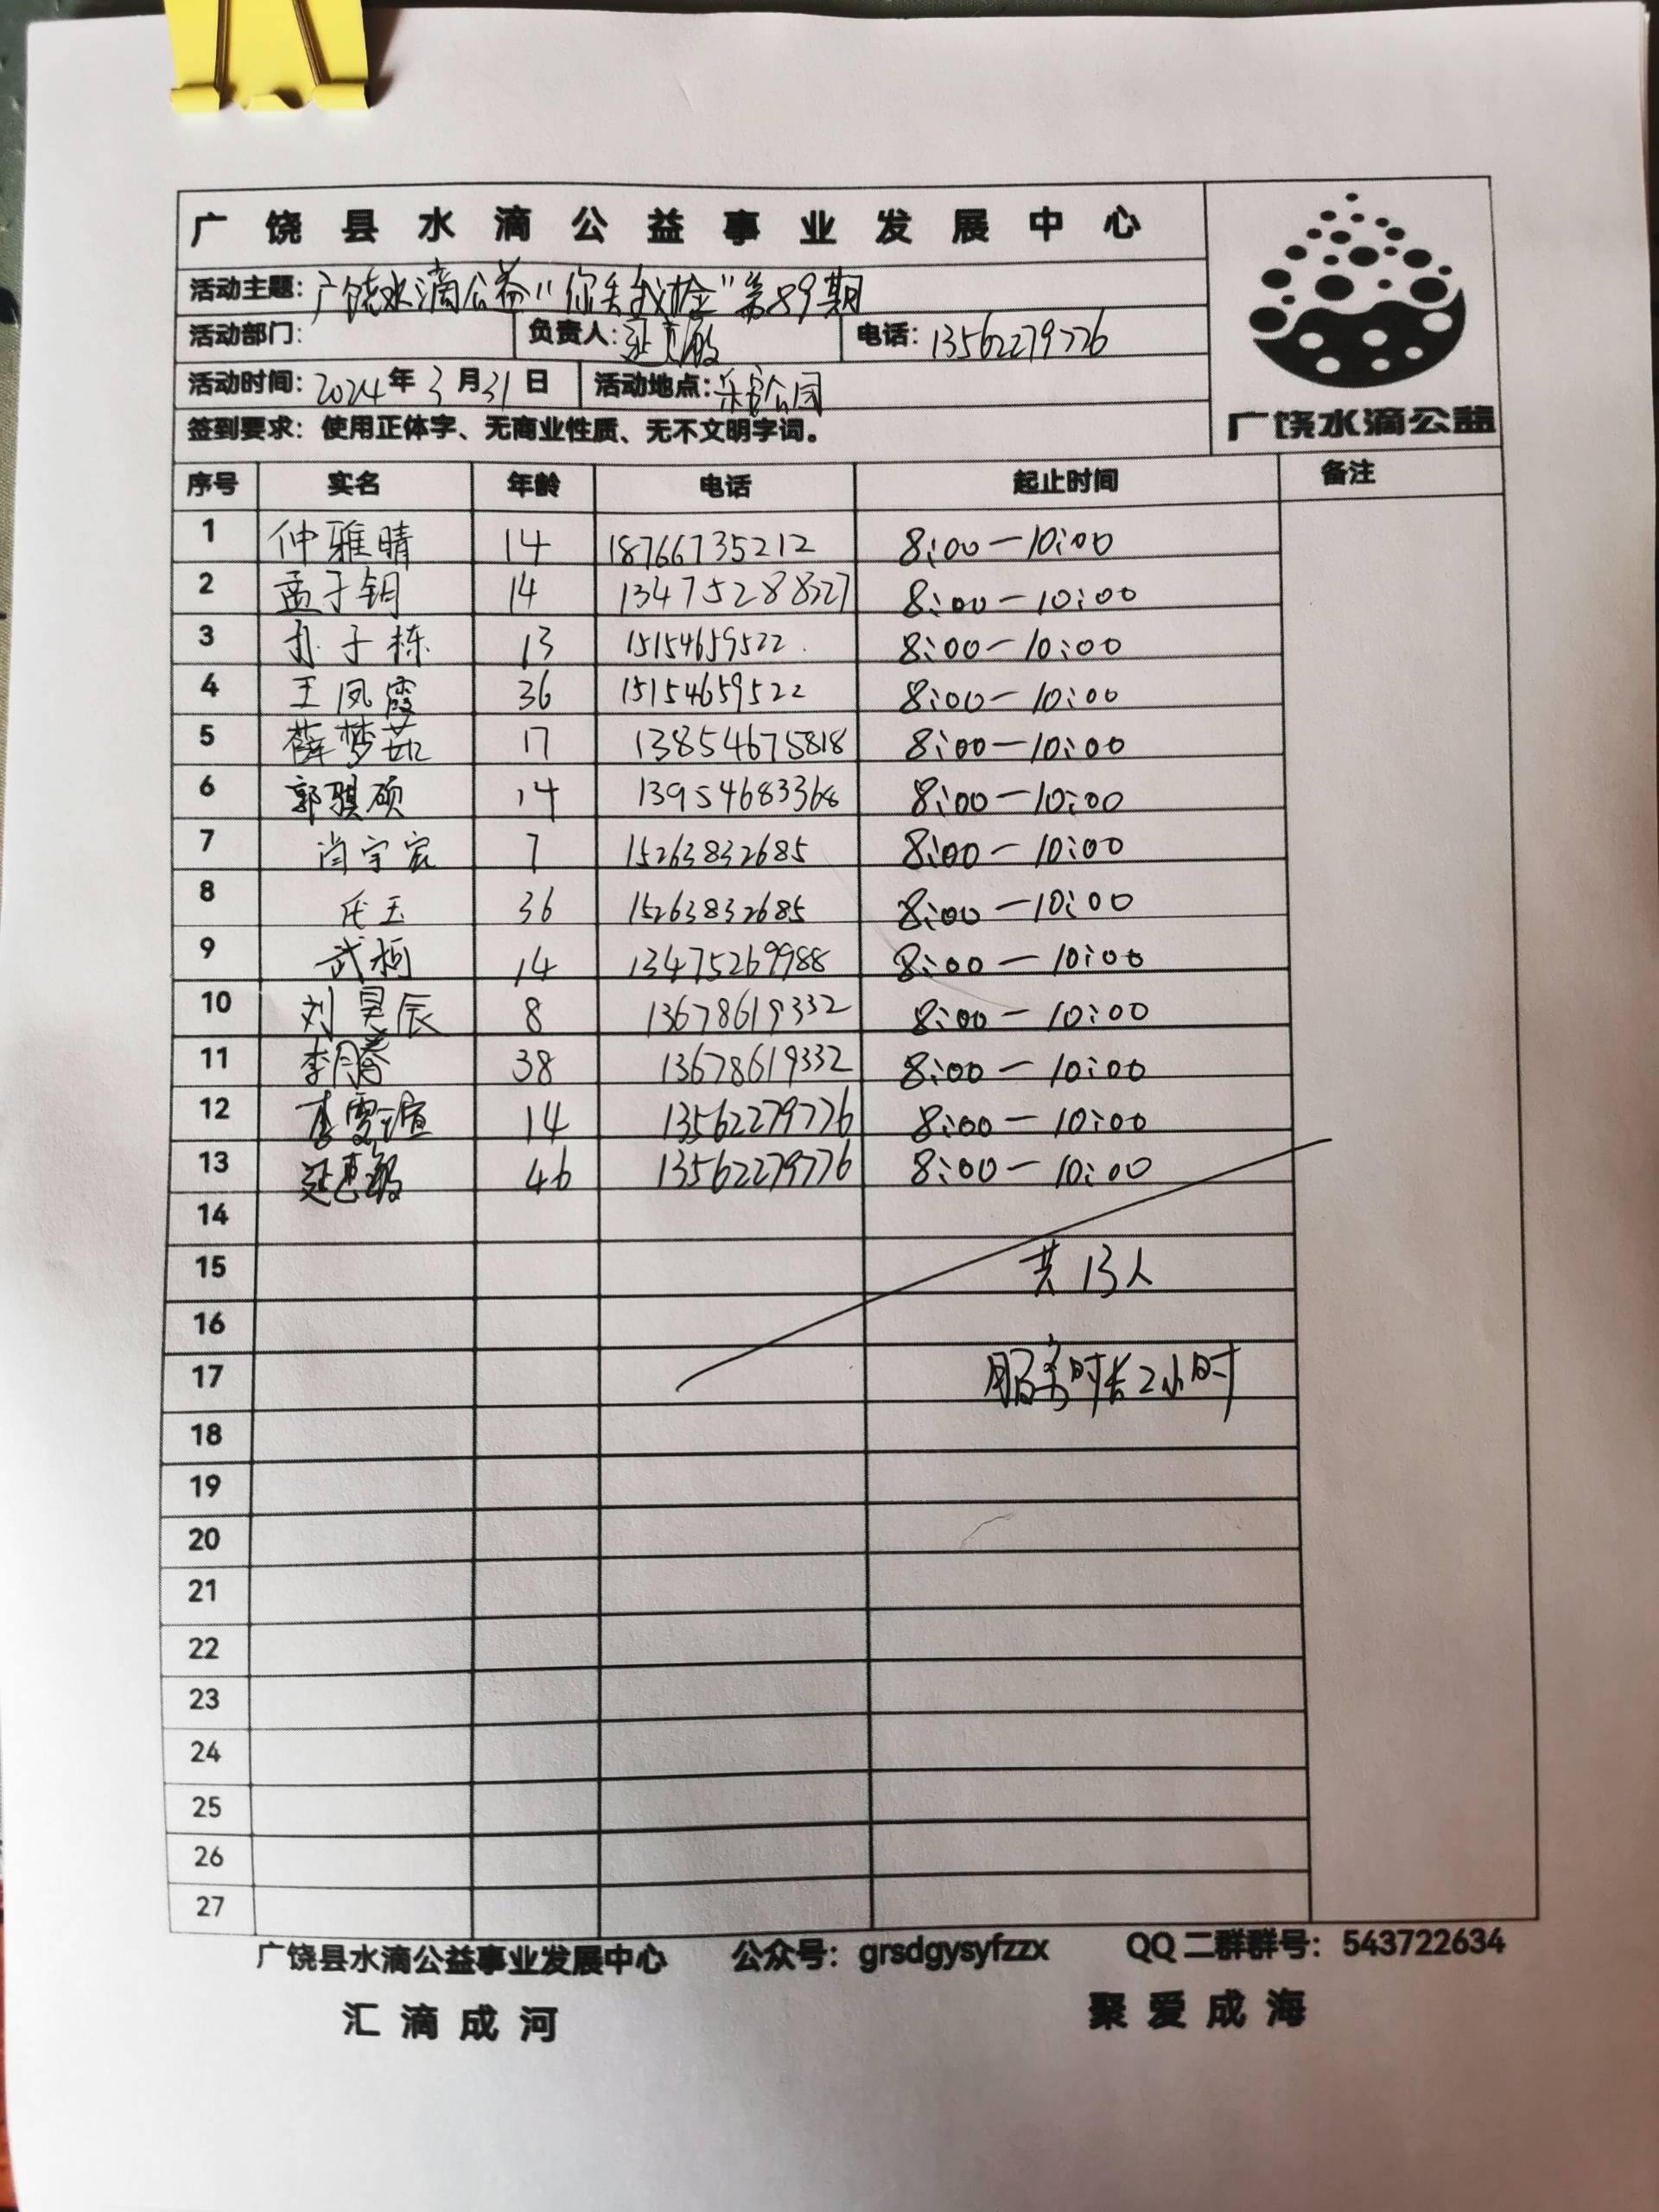 广饶县水滴公益事业发展中心
活动主题：广饶水滴公益“你丢我捡”第89期
活动部门： 负责人：延惠敏 电话：13562279776
活动时间：2024年3月31日 活动地点：乐安公园
签到要求：使用正体字、无商业性质、无不文明字词。
广饶水滴公益
序号 实名 年龄 电话 起止时间 备注
1 仲雅晴 14 18766735212 8:00－10:00
2 孟子钥 14 13475288327 8:00－10:00
3 孙子栋 13 15154659522 8:00－10:00
4 王凤霞 36 15154659522 8:00－10:00
5 薛梦茹 17 13854675818 8:00－10:00
6 郭骐硕 14 13954683368 8:00－10:00
7 闫宇宸 7 15263832685 8:00－10:00
8 任玉 36 15263832685 8:00－10:00
9 武柯 14 13475269988 8:00－10:00
10 刘昊辰 8 13678619332 8:00－10:00
11 李腾 38 13678619332 8:00－10:00
12 李雯瑄 14 13562279776 8:00－10:00
13 延惠敏 46 13562279776 8:00－10:00
14
15 共13人
16
17 服务时长2小时
18
19
20
21
22
23
24
25
26
27
广饶县水滴公益事业发展中心 公众号：grsdgysyfzzx QQ二群群号：543722634
汇滴成河 聚爱成海